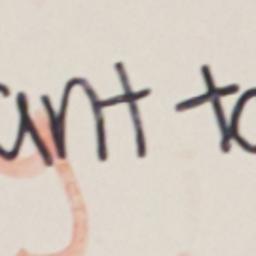 unt to